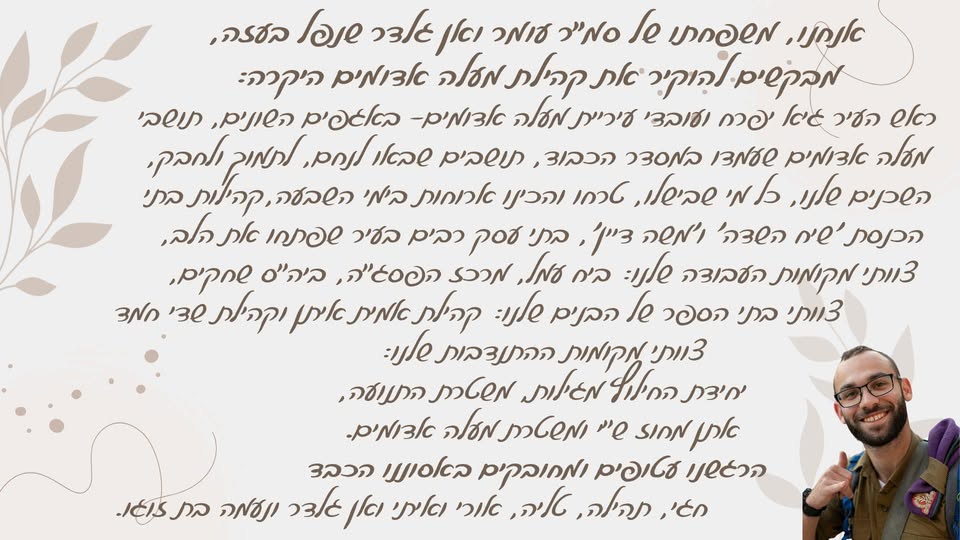 אנחנו, משפחתו של סמ"ר עומר ואן גלדר שנפל בעזה,
מבקשים להוקיר את קהילת מעלה אדומים היקרה:
ראש העיר גיא יפרח ועובדי עיריית מעלה אדומים- באגפים השונים, תושבי
מעלה אדומים שעמדו במסדר הכבוד, תושבים שבאו לנחם, לתמוך ולחבק,
השכנים שלנו, כל מי שבישלו, טרחו והכינו ארוחות בימי השבעה,קהילות בתי
הכנסת 'שיח השדה' ו'משה דיין', בתי עסק רבים בעיר שפתחו את הלב,
צוותי מקומות העבודה שלנו: ביח עמל, מרכז הפסג"ה, ביה"ס שחקים,
צוותי בתי הספר של הבנים שלנו: קהילת אמית איתן וקהילת שדי חמד
צוותי מקומות ההתנדבות שלנו:
יחידת החילוץ מגילות, משטרת התנועה,
אתן מחוז ש"י ומשטרת מעלה אדומים.
הרגשנו עטופים ומחובקים באסוננו הכבד
חגי, תהילה, טליה, אורי ואיתי ואן גלדר ונעמה בת זוגו.